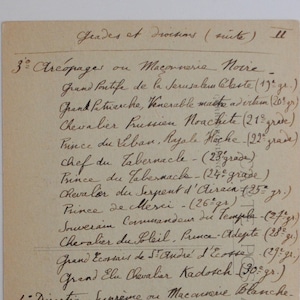 Grades et divisions (suite) II
3º Aréopages ou Maçonnerie Noire
Grand Pontife de la Jerusalem Céleste (19e gr.)
Grand Patriarche, Vénérable maître ad vitam (20e gr.)
Chevalier Prussien Noachite (21e grade)
Prince du Liban, Royale Hache (22e grade)
Chef du Tabernacle - (23e grade)
Prince du Tabernacle - (24e grade)
Chevalier du Serpent d'Airain (25e gr.)
Prince de Merci - (26e gr.)
Souverain Commandeur du Temple - (27e gr.)
Chevalier du Soleil, Prince Adepte (28e gr.)
Grand Ecossais de St André d'Ecosse (29e gr.)
Grand Elu Chevalier Kadosch (30e gr.)
Suprême ou Maçonnerie Blanche